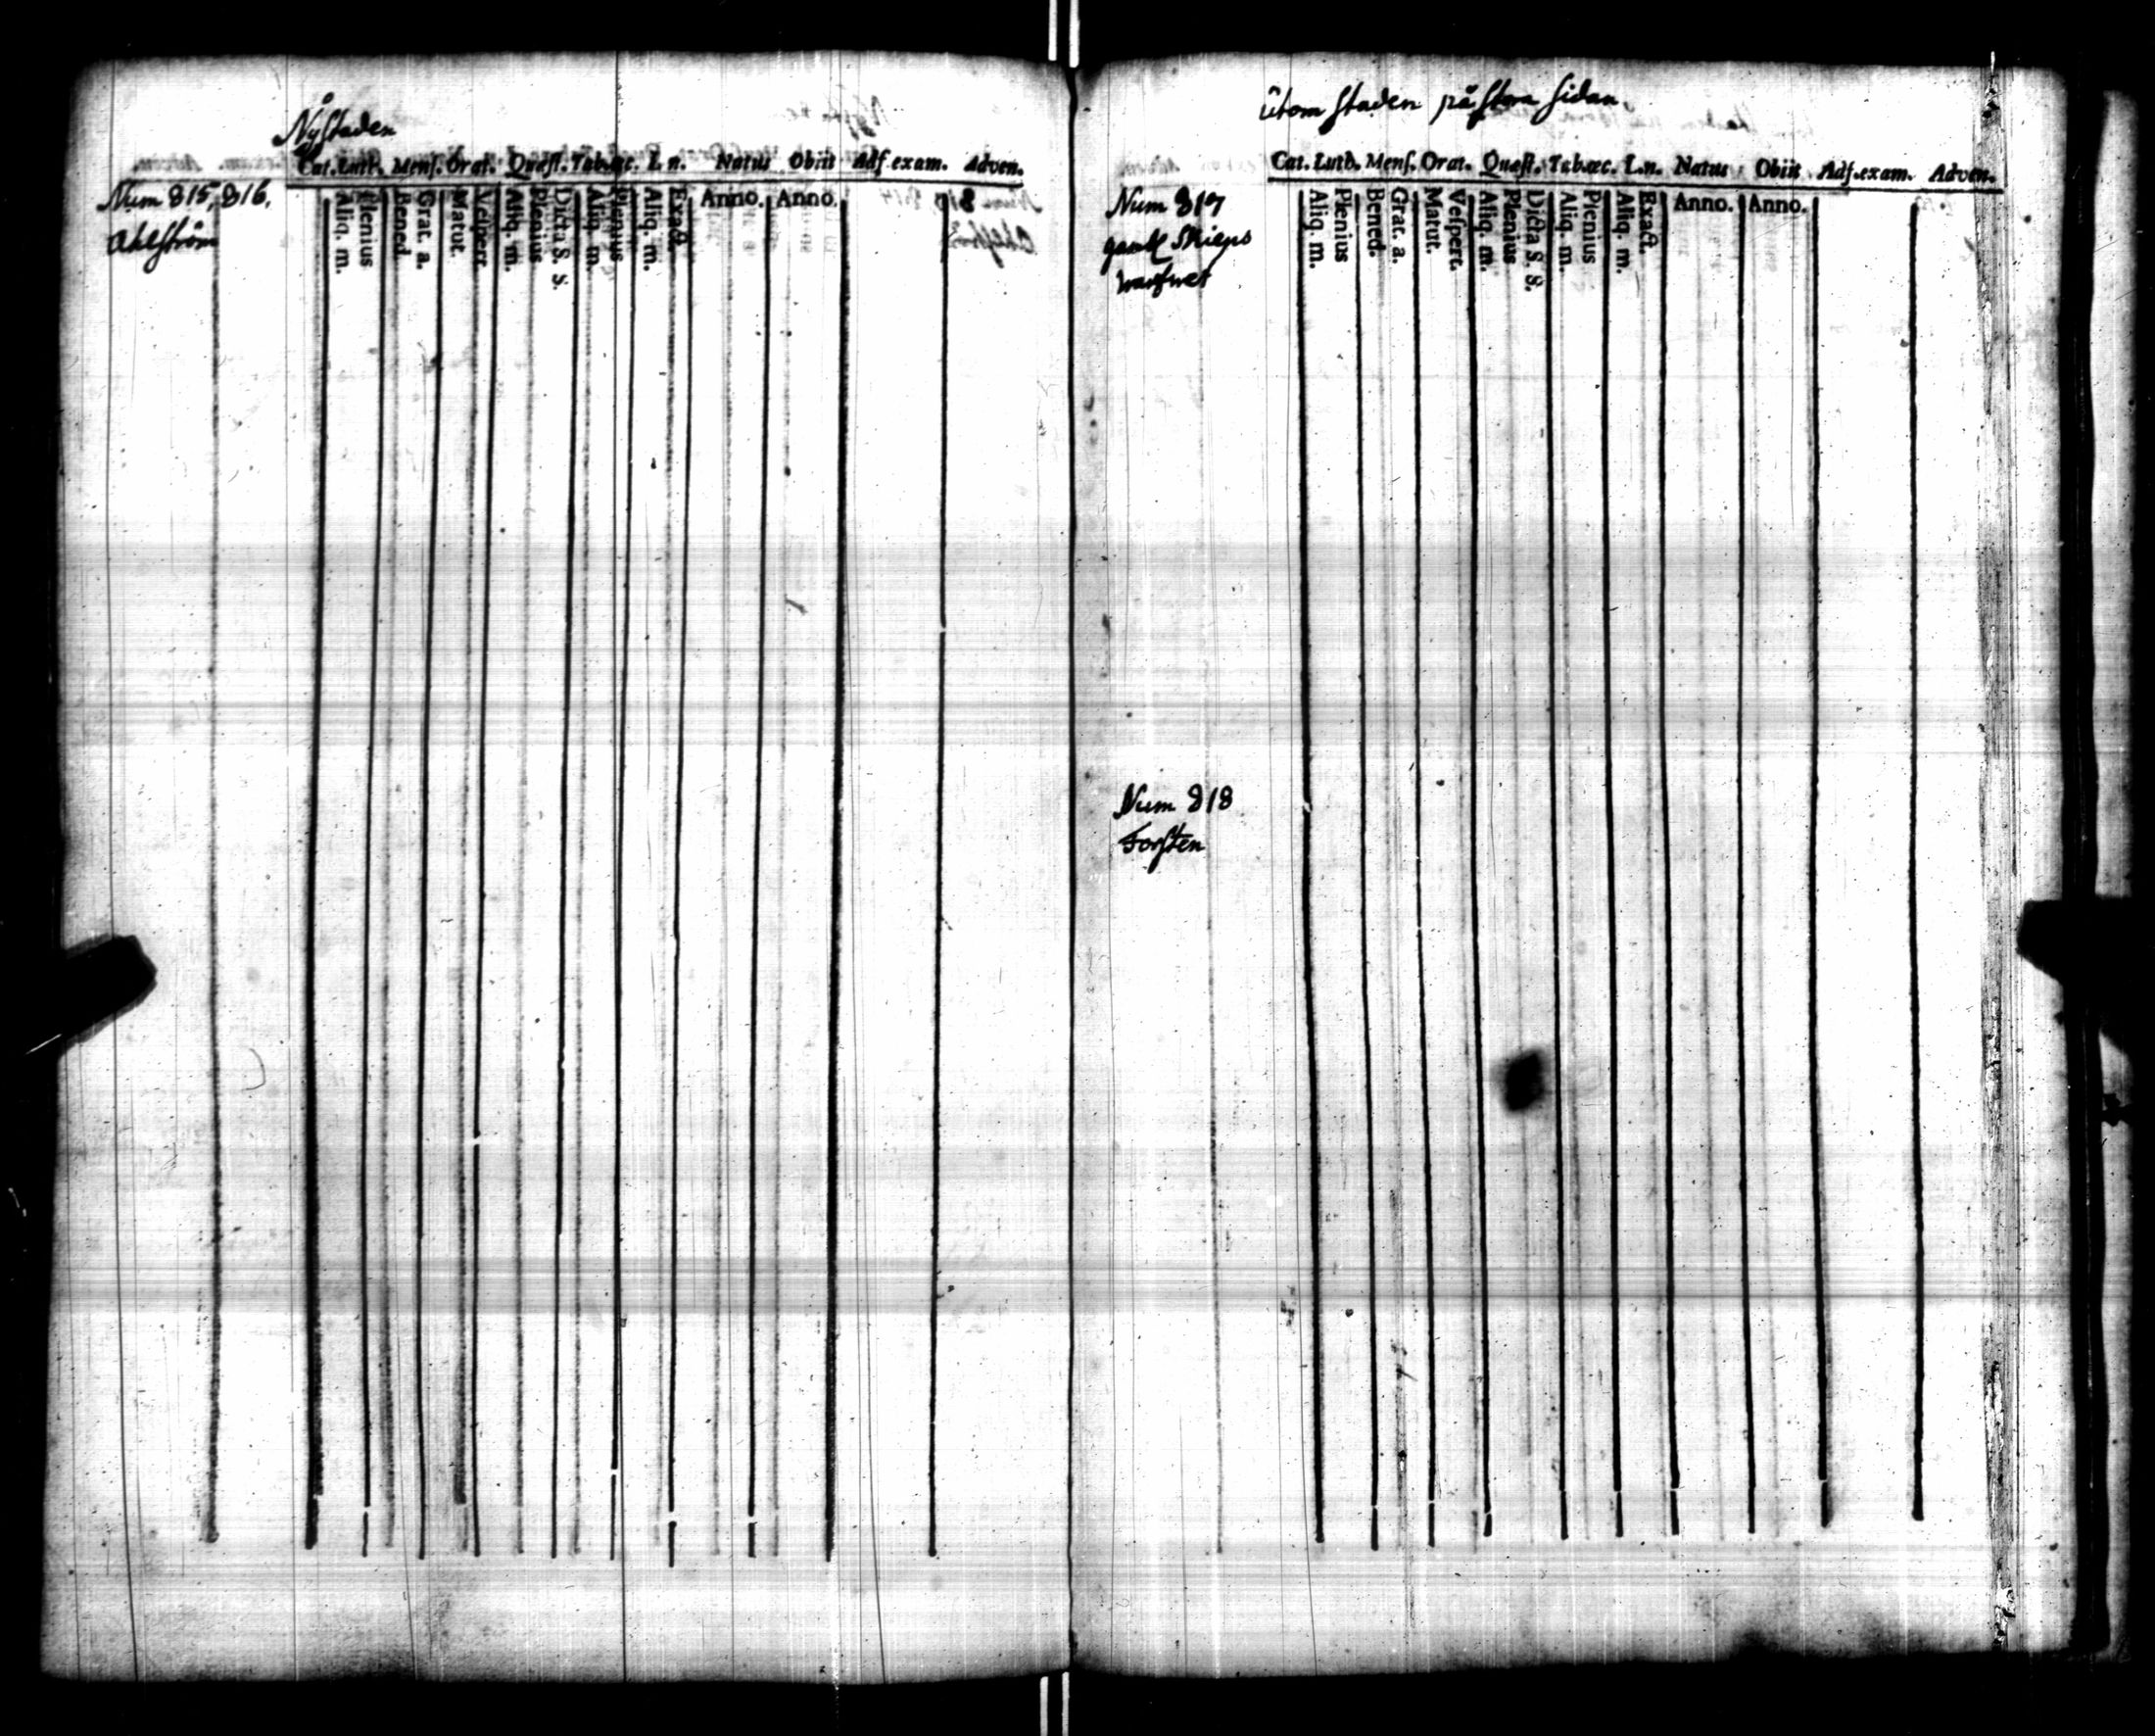 Nystaden
Cat. Luth. Menſ. Orat. Quæſt. Tabæc. L. n. Natus Obiit Adſ. exam. Adven.
Aliq. m. Plenius Bened. Grat. a. Matut. Veſpert. Aliq. m. Plenius Dicta S. S. Aliq. m. Plenius Aliq. m. Exact. Anno. Anno.
Num 815, 816,
Ahlström
utom staden på stora sidan,
Cat. Luth. Menſ. Orat. Quæſt. Tabæc. L. n. Natus Obiit Adſ. exam. Adven.
Aliq. m. Plenius Bened. Grat. a. Matut. Veſpert. Aliq. m. Plenius Dicta S. S. Aliq. m. Plenius Aliq. m. Exact. Anno. Anno.
Num 817
Skieps
warfwet
Num 818
Forsten